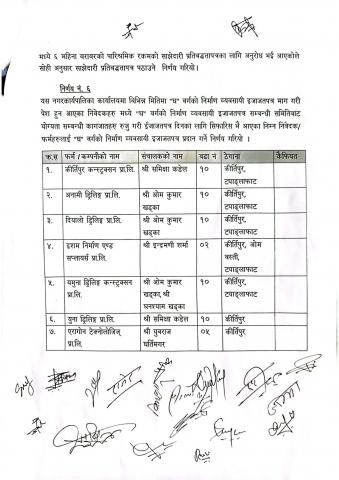 मध्ये ६ महिना बराबरको पारिश्रमिक रकमको साझेदारी प्रतिवद्धतापत्रका लागि अनुरोध भई आएकोले
सोही अनुसार साझेदारी प्रतिवद्धतापत्र पठाउने निर्णय गरियो ।
निर्णय नं. ६
यस नगरकार्यपालिका कार्यालयमा विभिन्न मितिमा "घ" वर्गको निर्माण व्यवसायी इजाजतपत्र माग गरी
पेश हुन आएका निवेदकहरु मध्ये "घ" वर्गको निर्माण व्यवसायी इजाजतपत्र सम्बन्धी समितिबाट
योग्यता सम्बन्धी कागजातहरु रुजु गरी ईजाजतपत्र दिनका लागि सिफारिस भै आएका निम्न निवेदक/
फर्महरुलाई "घ" वर्गको निर्माण व्यवसायी इजाजतपत्र प्रदान गर्ने निर्णय गरियो ।
क्र.स फर्म /कम्पनीको नाम संचालकको नाम वडा नं ठेगाना कैफियत
१. कीर्तिपुर कन्स्ट्रक्सन प्रा.लि. श्री समिक्षा कडेल १० कीर्तिपुर, ट्याङ्लाफाट
२. अनामी ड्रिलिङ्ग प्रा.लि. श्री ओम कुमार खड्का १० कीर्तिपुर, ट्याङ्लाफाट
३. दियालो ड्रिलिङ्ग प्रा.लि. श्री ओम कुमार खड्का १० कीर्तिपुर, ट्याङ्लाफाट
४. इशम निर्माण एण्ड सप्लायर्स प्रा.लि. श्री इन्द्रमणी शर्मा ०२ कीर्तिपुर, ओम वस्ती, ट्याङ्लाफाट
५. यमुना ड्रिलिङ्ग कन्स्ट्रक्सन प्रा.लि. श्री ओम कुमार खड्का,श्री घनश्याम खड्का १० कीर्तिपुर, ट्याङ्लाफाट
६. युना ड्रिलिङ्ग प्रा.लि. श्री समिक्षा कडेल १० कीर्तिपुर
७. एरागोन टेक्नोलोजिज् प्रा.लि. श्री युवराज घर्तिमगर ०५ कीर्तिपुर,